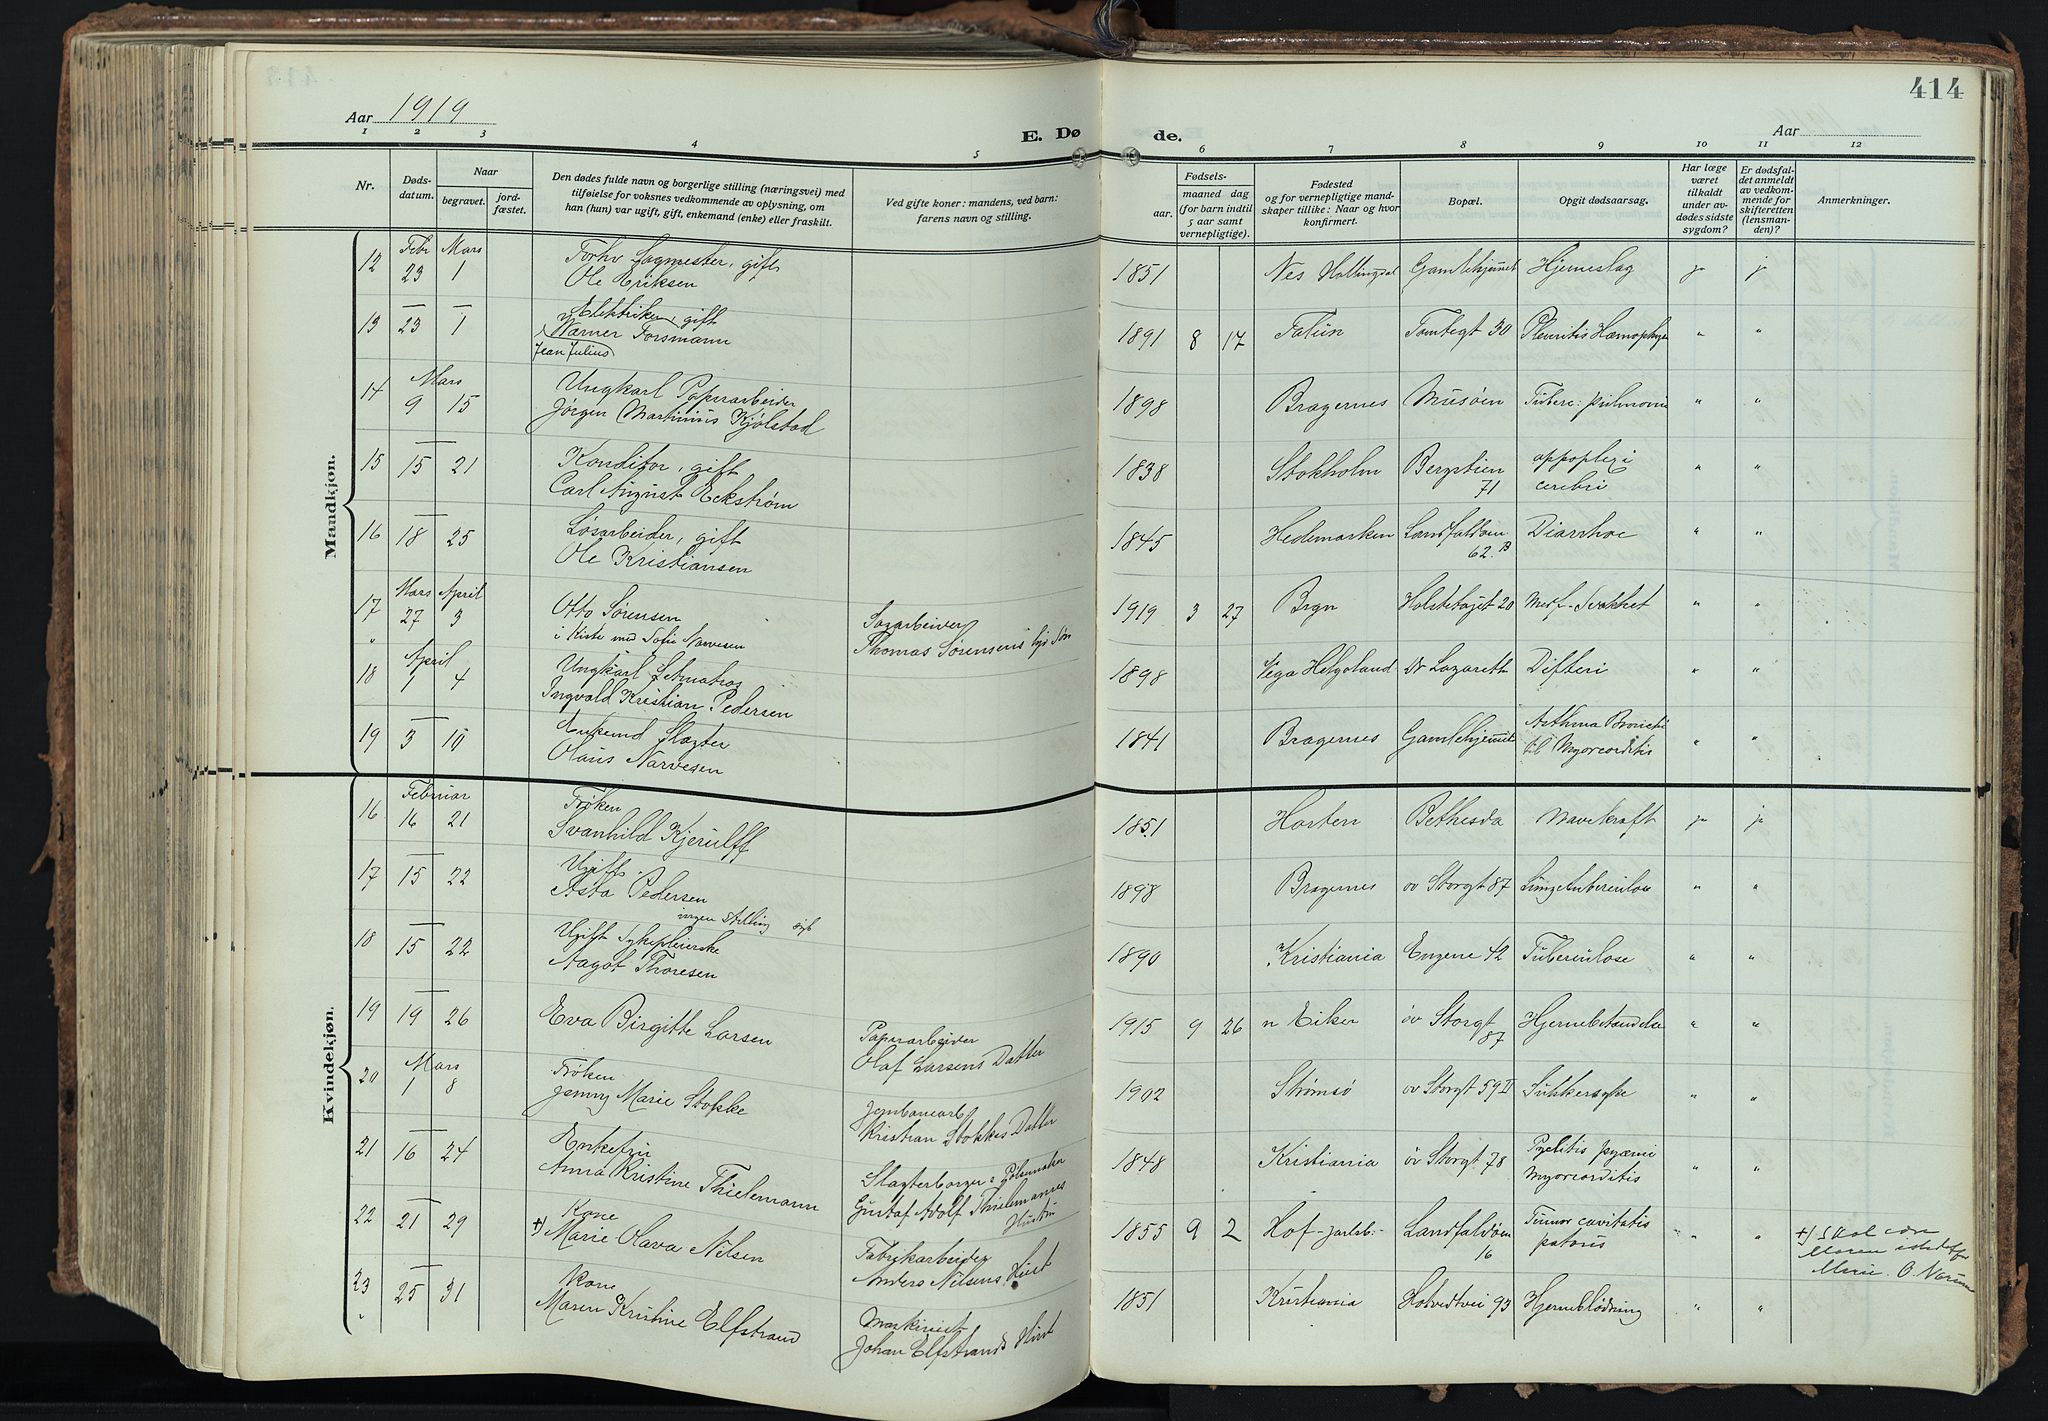 414
Aar 1919
E. Dø de.
Aar
1 2 3 4 5 6 7 8 9 10 11 12
Nr.
Døds-
datum.
Naar
begravet.
jord-
fæstet.
Den dødes fulde navn og borgerlige stilling (næringsvei) med
tilføielse for voksnes vedkommende av oplysning, om
han (hun) var ugift, gift, enkemand (enke) eller fraskilt.
Ved gifte koner: mandens, ved barn:
farens navn og stilling.
Fødsels-
aar.
maaned dag
(for barn indtil
5 aar samt
vernepligtige).
Fødested
og for vernepligtige mand-
skaper tillike: Naar og hvor
konfirmert.
Bopæl.
Opgit dødsaarsag.
Har læge
været
tilkaldt
under av-
dødes sidste
sygdom?
Er dødsfal-
det anmeldt
av vedkom-
mende for
skifteretten
(lensman-
den)?
Anmerkninger.
Mandkjøn.
12 Febr 23 Mars 1 Forhv Sagmester, gift 1851 Nes Hallingdal Gamlehjemmet Hjerneslag ja ja
Ole Eriksen
13 23 1 Elektriker, gift 1891 8 17 Falun Tomtegt 30 Pleuritis " "
Werner Forsmann
Jean Julius
14 Mars 9 15 Ungkarl Papirarbeider 1898 Bragernes Musøen Tuberc: pulmonu " "
Jørgen Martinius Kjølstad
15 15 21 Konditor, gift 1838 Stokholm Bergstien 71 appoplexi cerebri " "
Carl August Eckstrøm
16 18 25 Løsarbeider, gift 1845 Hedemarken 62 B Diarrhoe " "
Ole Kristiansen
17 Mars 27 April 3 Otto Sørensen Sagarbeider 1919 3 27 Bragn 20 " "
" i Kiste med Sofie Narvesen Thomas Sørensens Søn
18 April 1 4 Ungkarl Letmatros 1898 Vega Helgoland Dr Lazareth Difteri " "
Ingvald Kristian Pedersen
19 3 10 Enkemd Slagter 1841 Bragernes Gamlehjemmet Asthma " "
Olaus Narvesen til Myocarditis
Kvindekjøn.
16 Februar 16 21 Frøken 1851 Horten Bethesda Mavekraft ja ja
Svanhild Kjerulff
17 15 22 Ugift 1898 Bragernes øv Storgt 87 Lungetuberculose " "
Asta Pedersen
ingen stilling
18 15 22 Ugift Sykepleierske 1890 Kristiania Engene 42 Tuberculose " "
Aagot Thoresen
19 19 26 Eva Birgitte Larsen Papirarbeider 1915 9 26 n Eiker øv Storgt 87 Hjernebetændelse " "
Olaf Larsens Datter
20 Mars 1 8 Frøken 1902 Strømsø øv Storgt 59 II Sukkersyke " "
Jenny Marie Stokke Jernbanearb
Kristian Stokkes Datter
21 16 24 Enkefru 1848 Kristiania øv Storgt 78 Pyelitis pyæmi " "
Anna Kristine Thielemann Slagterborger & Pølsemaker Myocarditis
Gustaf Adolf Thielemannes
Hustru
22 21 29 Kone 1855 9 2 Hof-Jarlsb: Landfaldøen 16 Tumor cavitatis " " +) Skal være
+) Marie Olava Nilsen Fabrikarbeider Maren istedetfor
Anders Nilsens Hust Marie. O.
23 25 31 Kone 1851 Kristiania Hotvedtvei 93 Hjerneblødning " "
" Maren Kristine Elfstrand Maskinist
Johan Elfstrands Hust